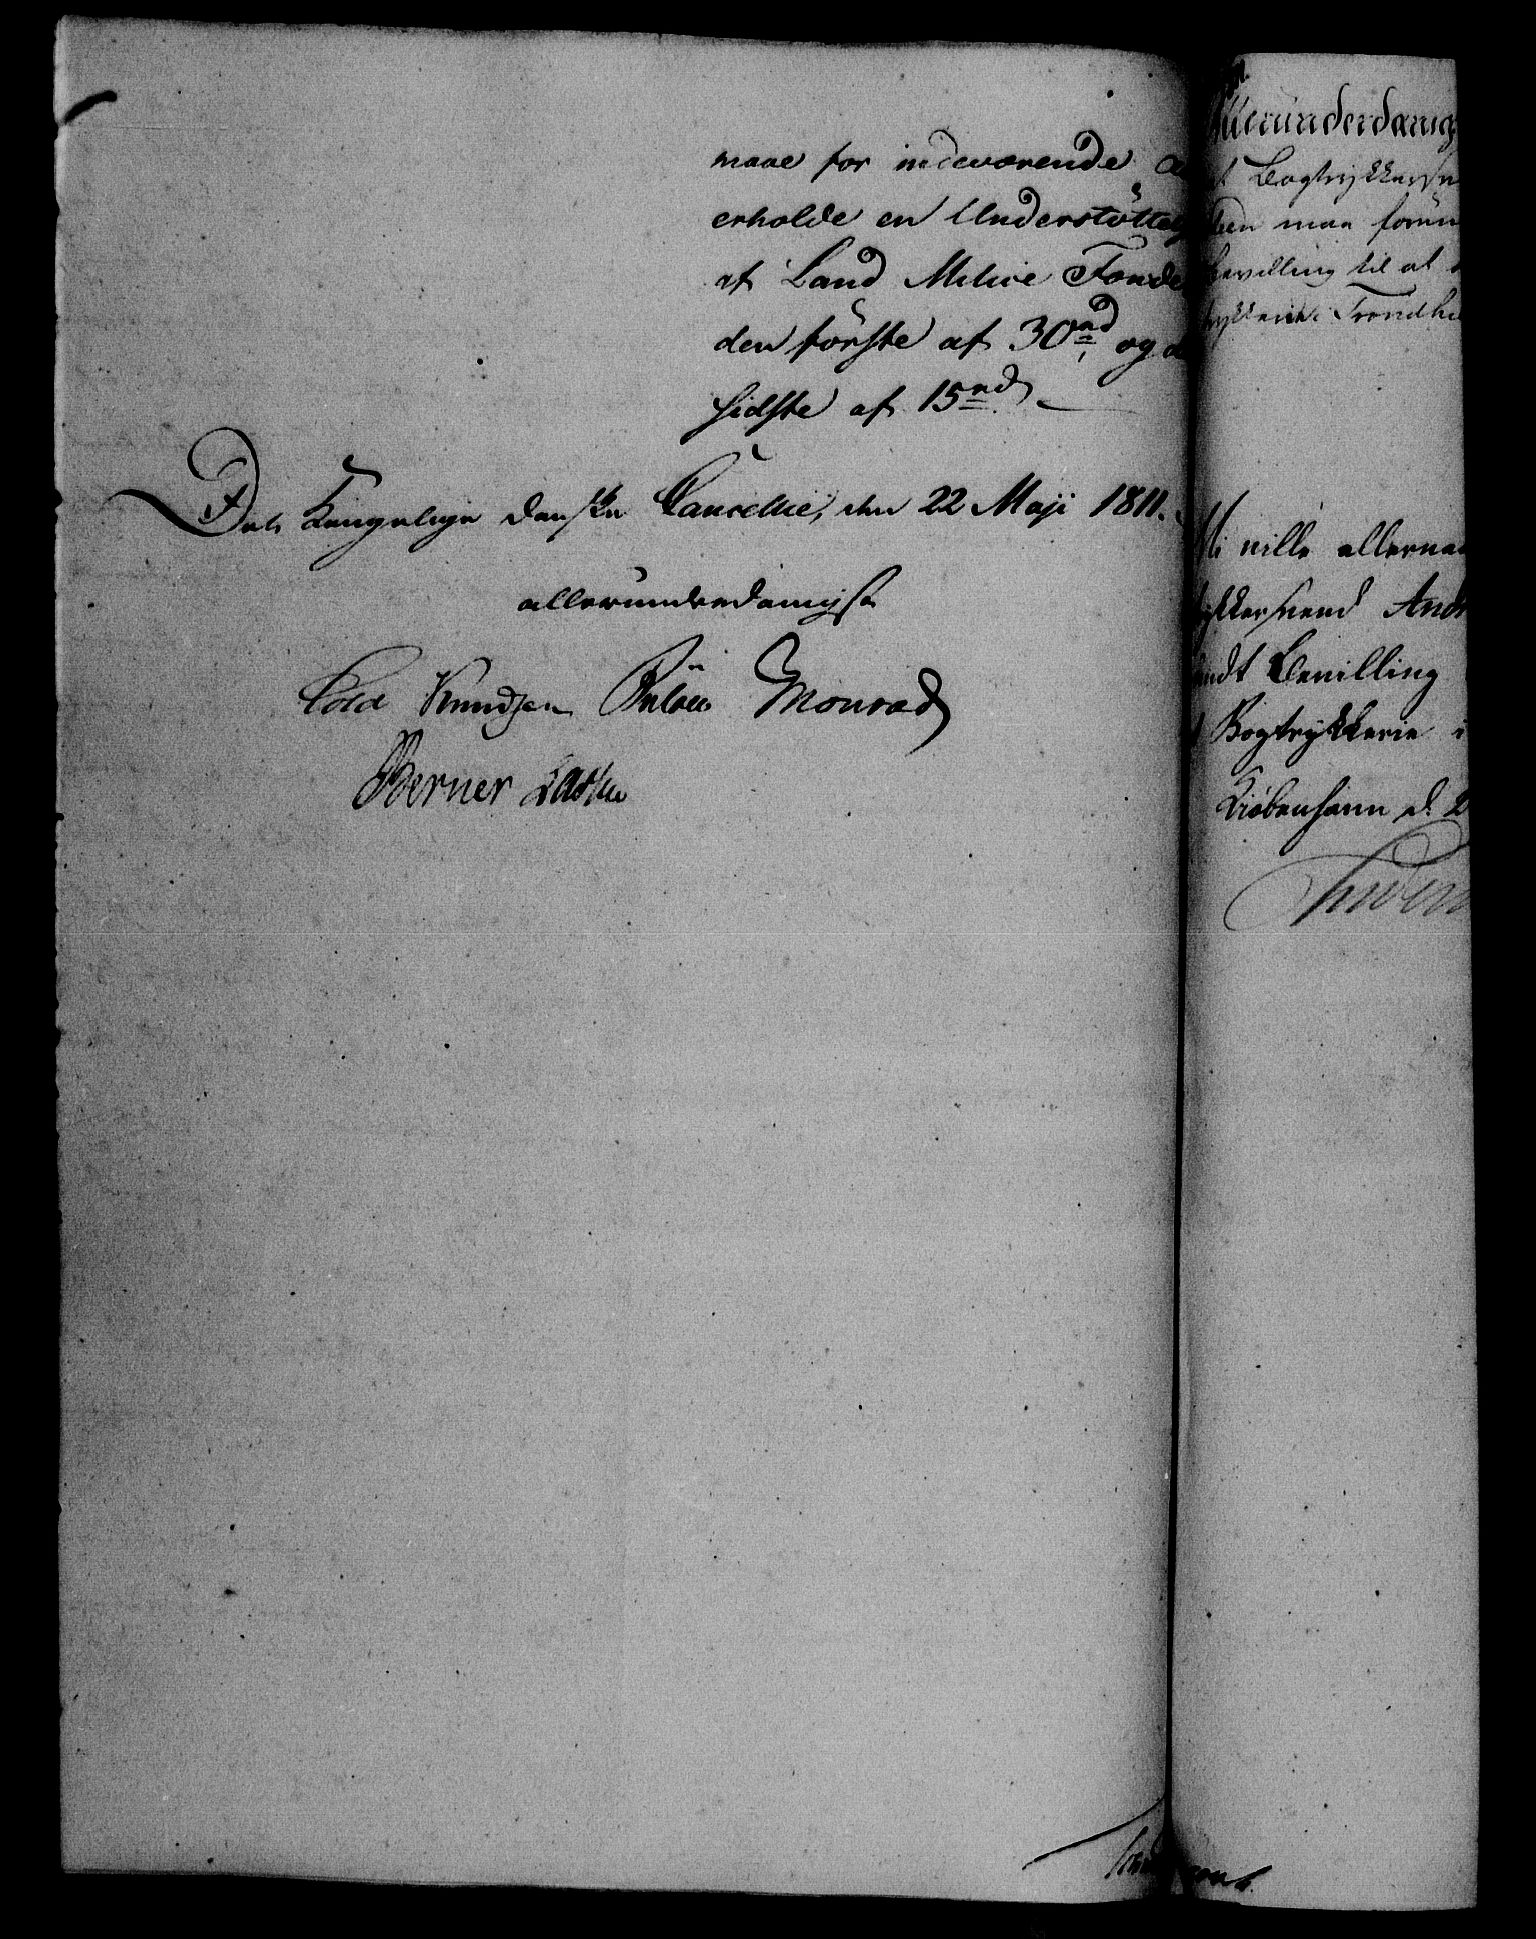 maae for indeværende
erholde en Understötte
af Land Milice Fonde
den förste af 30 rd og
sidste af 15 rd
Det Kongelige danske Cancellie, den 22 Maji 1811.
allerunderdanigst
Cold Knudsen Monrad
Berner Lassen
Allerunderdanig
at Bogtrykkersv
maa forun
Bevilling til at
Trondhi
Vi ville allernaa
trykkersvend And
Bevilling
Bogtrykkerie i
Kiøbenhavn d. 2